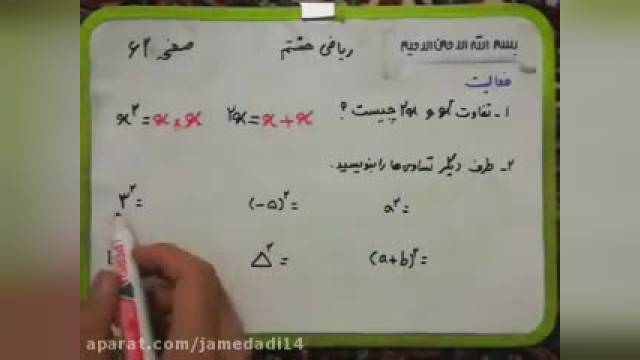 بسم الله الرحمن الرحیم ریاضی هشتم صفحه ۶۲
فعالیت
۱- تفاوت x² و ۲x چیست ؟ ۲x = x + x x² = x × x
۲- طرف دیگر تساوی ها را بنویسید.
a² = (-۵)² = ۳² =
(a+b)² = △² =
aparat.com/jamedadi14